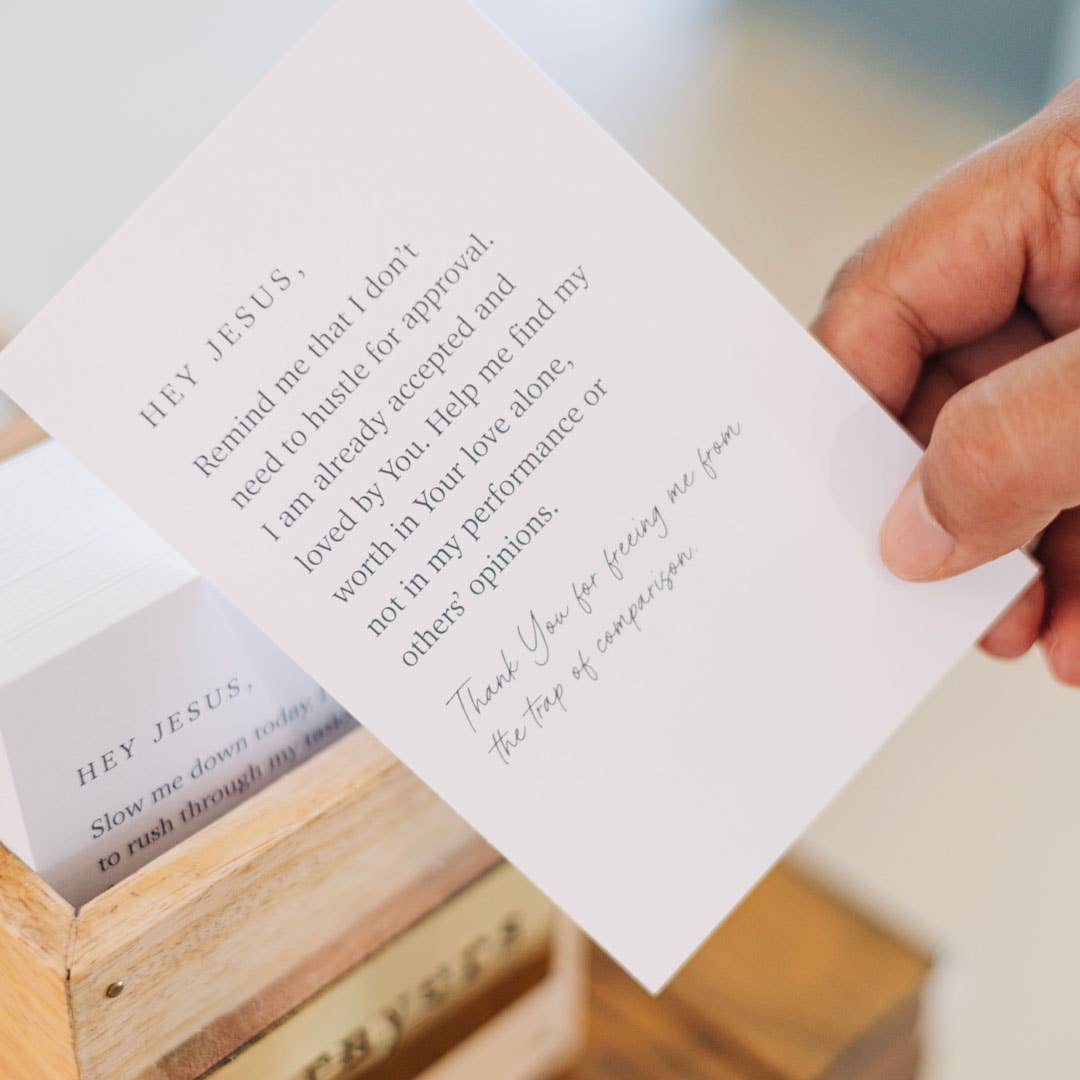 HEY JESUS,
Remind me that I don't
need to hustle for approval.
I am already accepted and
loved by You. Help me find my
worth in Your love alone,
not in my performance or
others' opinions.
Thank You for freeing me from
the trap of comparison.
HEY JESUS,
Slow me down today.
to rush through my tasks